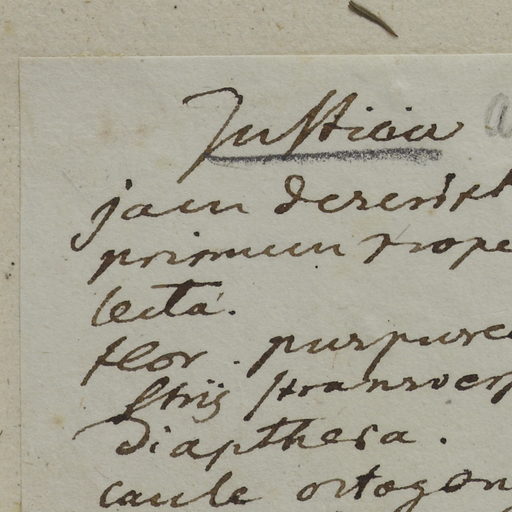 Justicia a
jam descript
primum prope
lecta.
flor. purpure
striis transvers
Diapthera.
caule ortogon